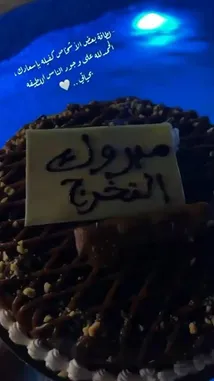 لطافة بعض الأشخاص كفيلة بإسعادك،
الحمدلله على وجود الناس اللطيفه
بحياتي..🤍
مبروك
التخرج